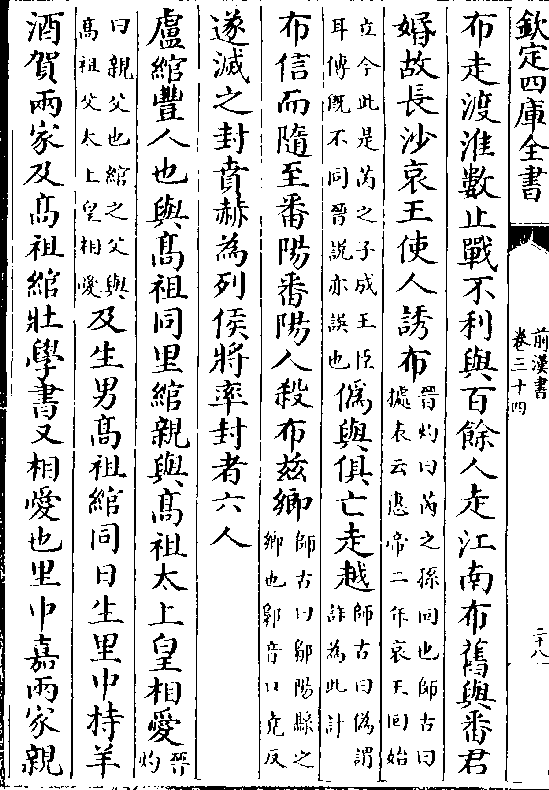 欽定四庫全書
前漢書
卷三十四
二十八
布走渡淮數止戰不利與百餘人走江南布舊與番君
婚故長沙哀王使人誘布晉灼曰芮之孫回也師古曰
據表云惠帝二年哀王回始
立今此是芮之子成王臣
耳傳既不同晉說亦誤也偽與俱亡走越師古曰偽謂
詐為此計
布信而隨至番陽番陽人殺布兹鄉師古曰鄡陽縣之
鄉也鄡音口堯反
遂滅之封賁赫為列侯將率封者六人
盧綰豐人也與髙祖同里綰親與髙祖太上皇相愛晉
灼
曰親父也綰之父與
髙祖父太上皇相愛及生男髙祖綰同日生里中持羊
酒賀兩家及髙祖綰壯學書又相愛也里中嘉兩家親